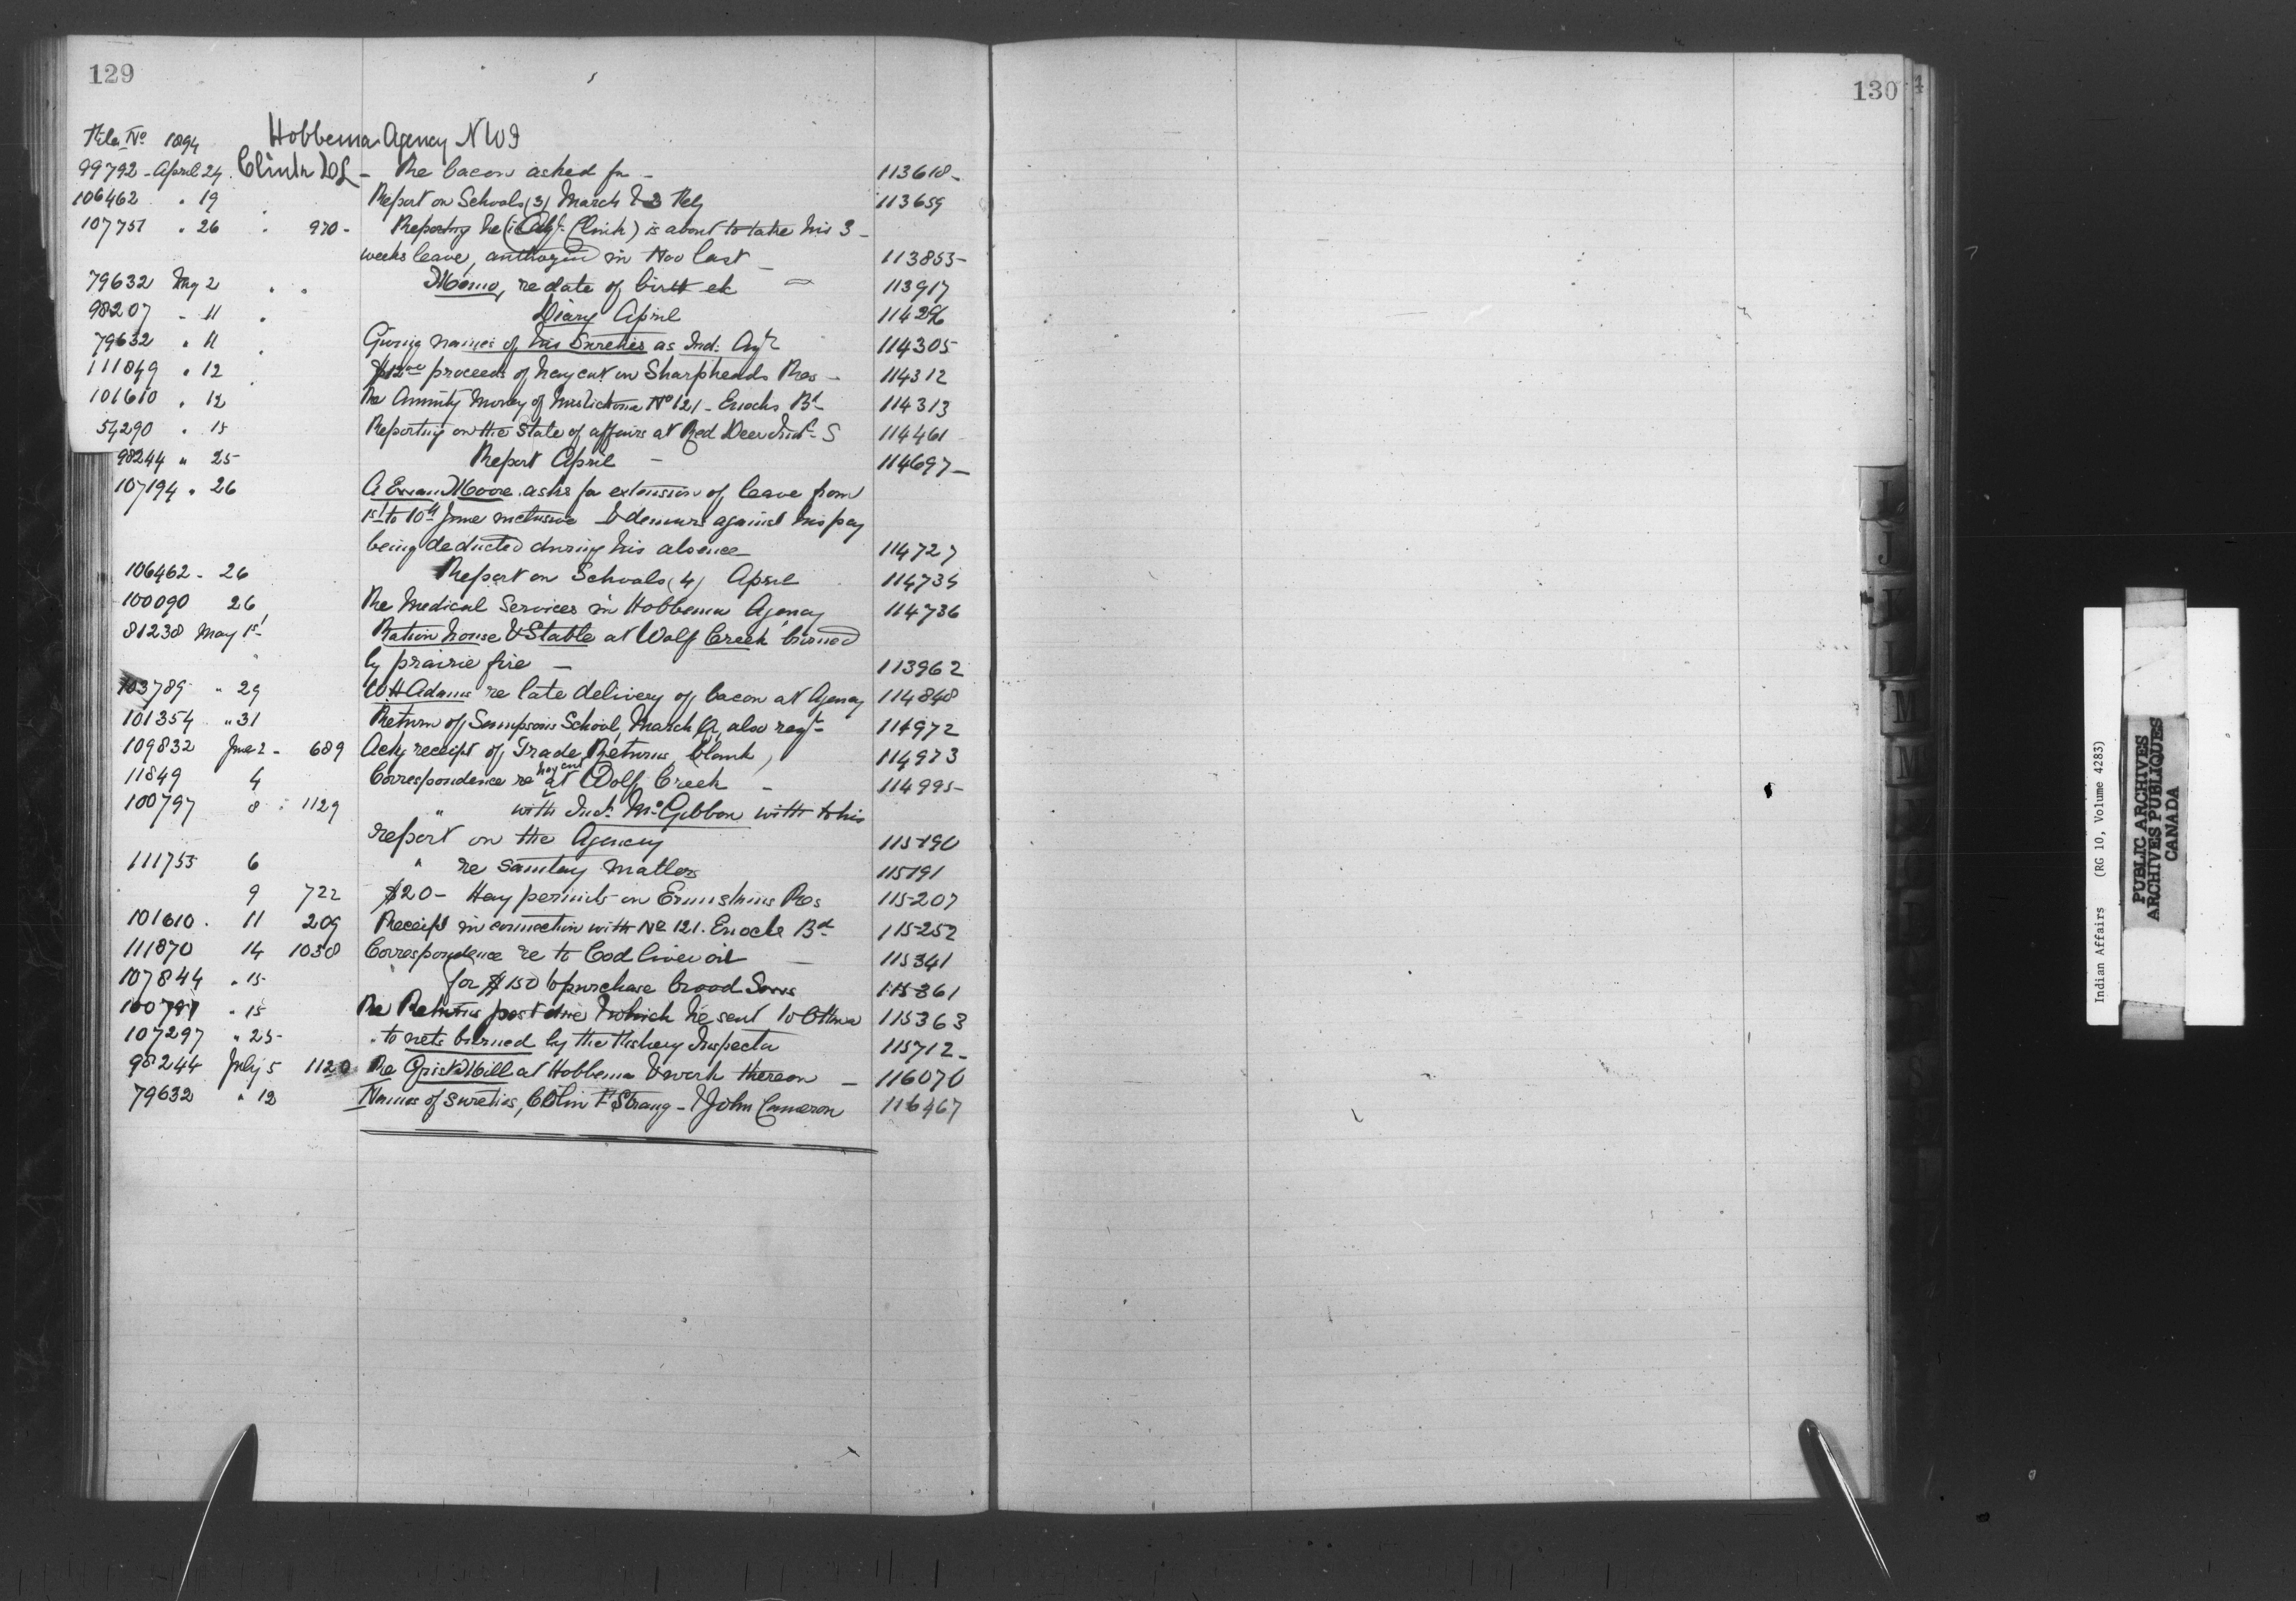 129
File No 1894 Hobbema Agency N W T
99792 - April 24 Clink D L - Re bacon asked for - 113618 -
106462 " 19 Report on Schools (3) March & 3 Rely 113659
107751 " 26 " 970 - Reporting he (i.e. Agt. Clink) is about to take his 3
weeks leave, authorized in Nov last - 113853
79632 May 2 " " Memo, re date of birth etc 113917
98207 " 11 " Diary April 114296
79632 " 11 " Giving names of his Sureties as Ind: Agt 114305
111849 " 12 " $12.00 proceeds of hay cut on Sharpheads Res - 114312
101610 " 12 Re Annuity Money of No 121 - Enochs Bd 114313
54290 " 15 Reporting on the State of affairs at Red Deer Indl S 114461
98244 " 25 Report April - 114697 -
107194 " 26 A Evan Moore asks for extension of leave from
1st to 10th June inclusive & demurs against his pay
being deducted during his absence 114727
106462 - 26 Report on Schools (4) April 114735
100090 26 Re Medical Services in Hobbema Agency 114736
81238 May 1st Ration house & Stable at Wolf Creek burned
by prairie fire - 113962
103789 " 29 W H Adams re late delivery of bacon at Agency 114848
101354 " 31 Return of Sampsons School, March Q, also reqt 114972
109832 June 2 - 689 Ackg receipt of Trade Returns, blank, 114973
11849 4 Correspondence re hay cut at Wolf Creek - 114995
100797 8 " 1129 " with Ind. McGibbon with to his
report on the Agency 115190
111755 6 " re sanitary matters 115191
9 722 $20 - Hay permits on Ermskins Res 115207
101610 . 11 209 Receipt in connection with No 121. Enochs Bd 115252
111870 14 1038 Correspondence re to Cod liver oil - 115341
107844 " 15 " for $150 to purchase brood Sows 115361
100797 " 15 Re Returns past due & which he sent to Ottawa 115363
107297 " 25 " to nets burned by the Fishery Inspector 115712 -
98244 July 5 1120 Re Grist Mill at Hobbema & work thereon - 116070
79632 " 12 Names of sureties, Colin F Strang - & John Cameron 116467
130
I
J
K
L
M
M
Indian Affairs (RG 10, Volume 4283)
PUBLIC ARCHIVES
ARCHIVES PUBLIQUES
CANADA